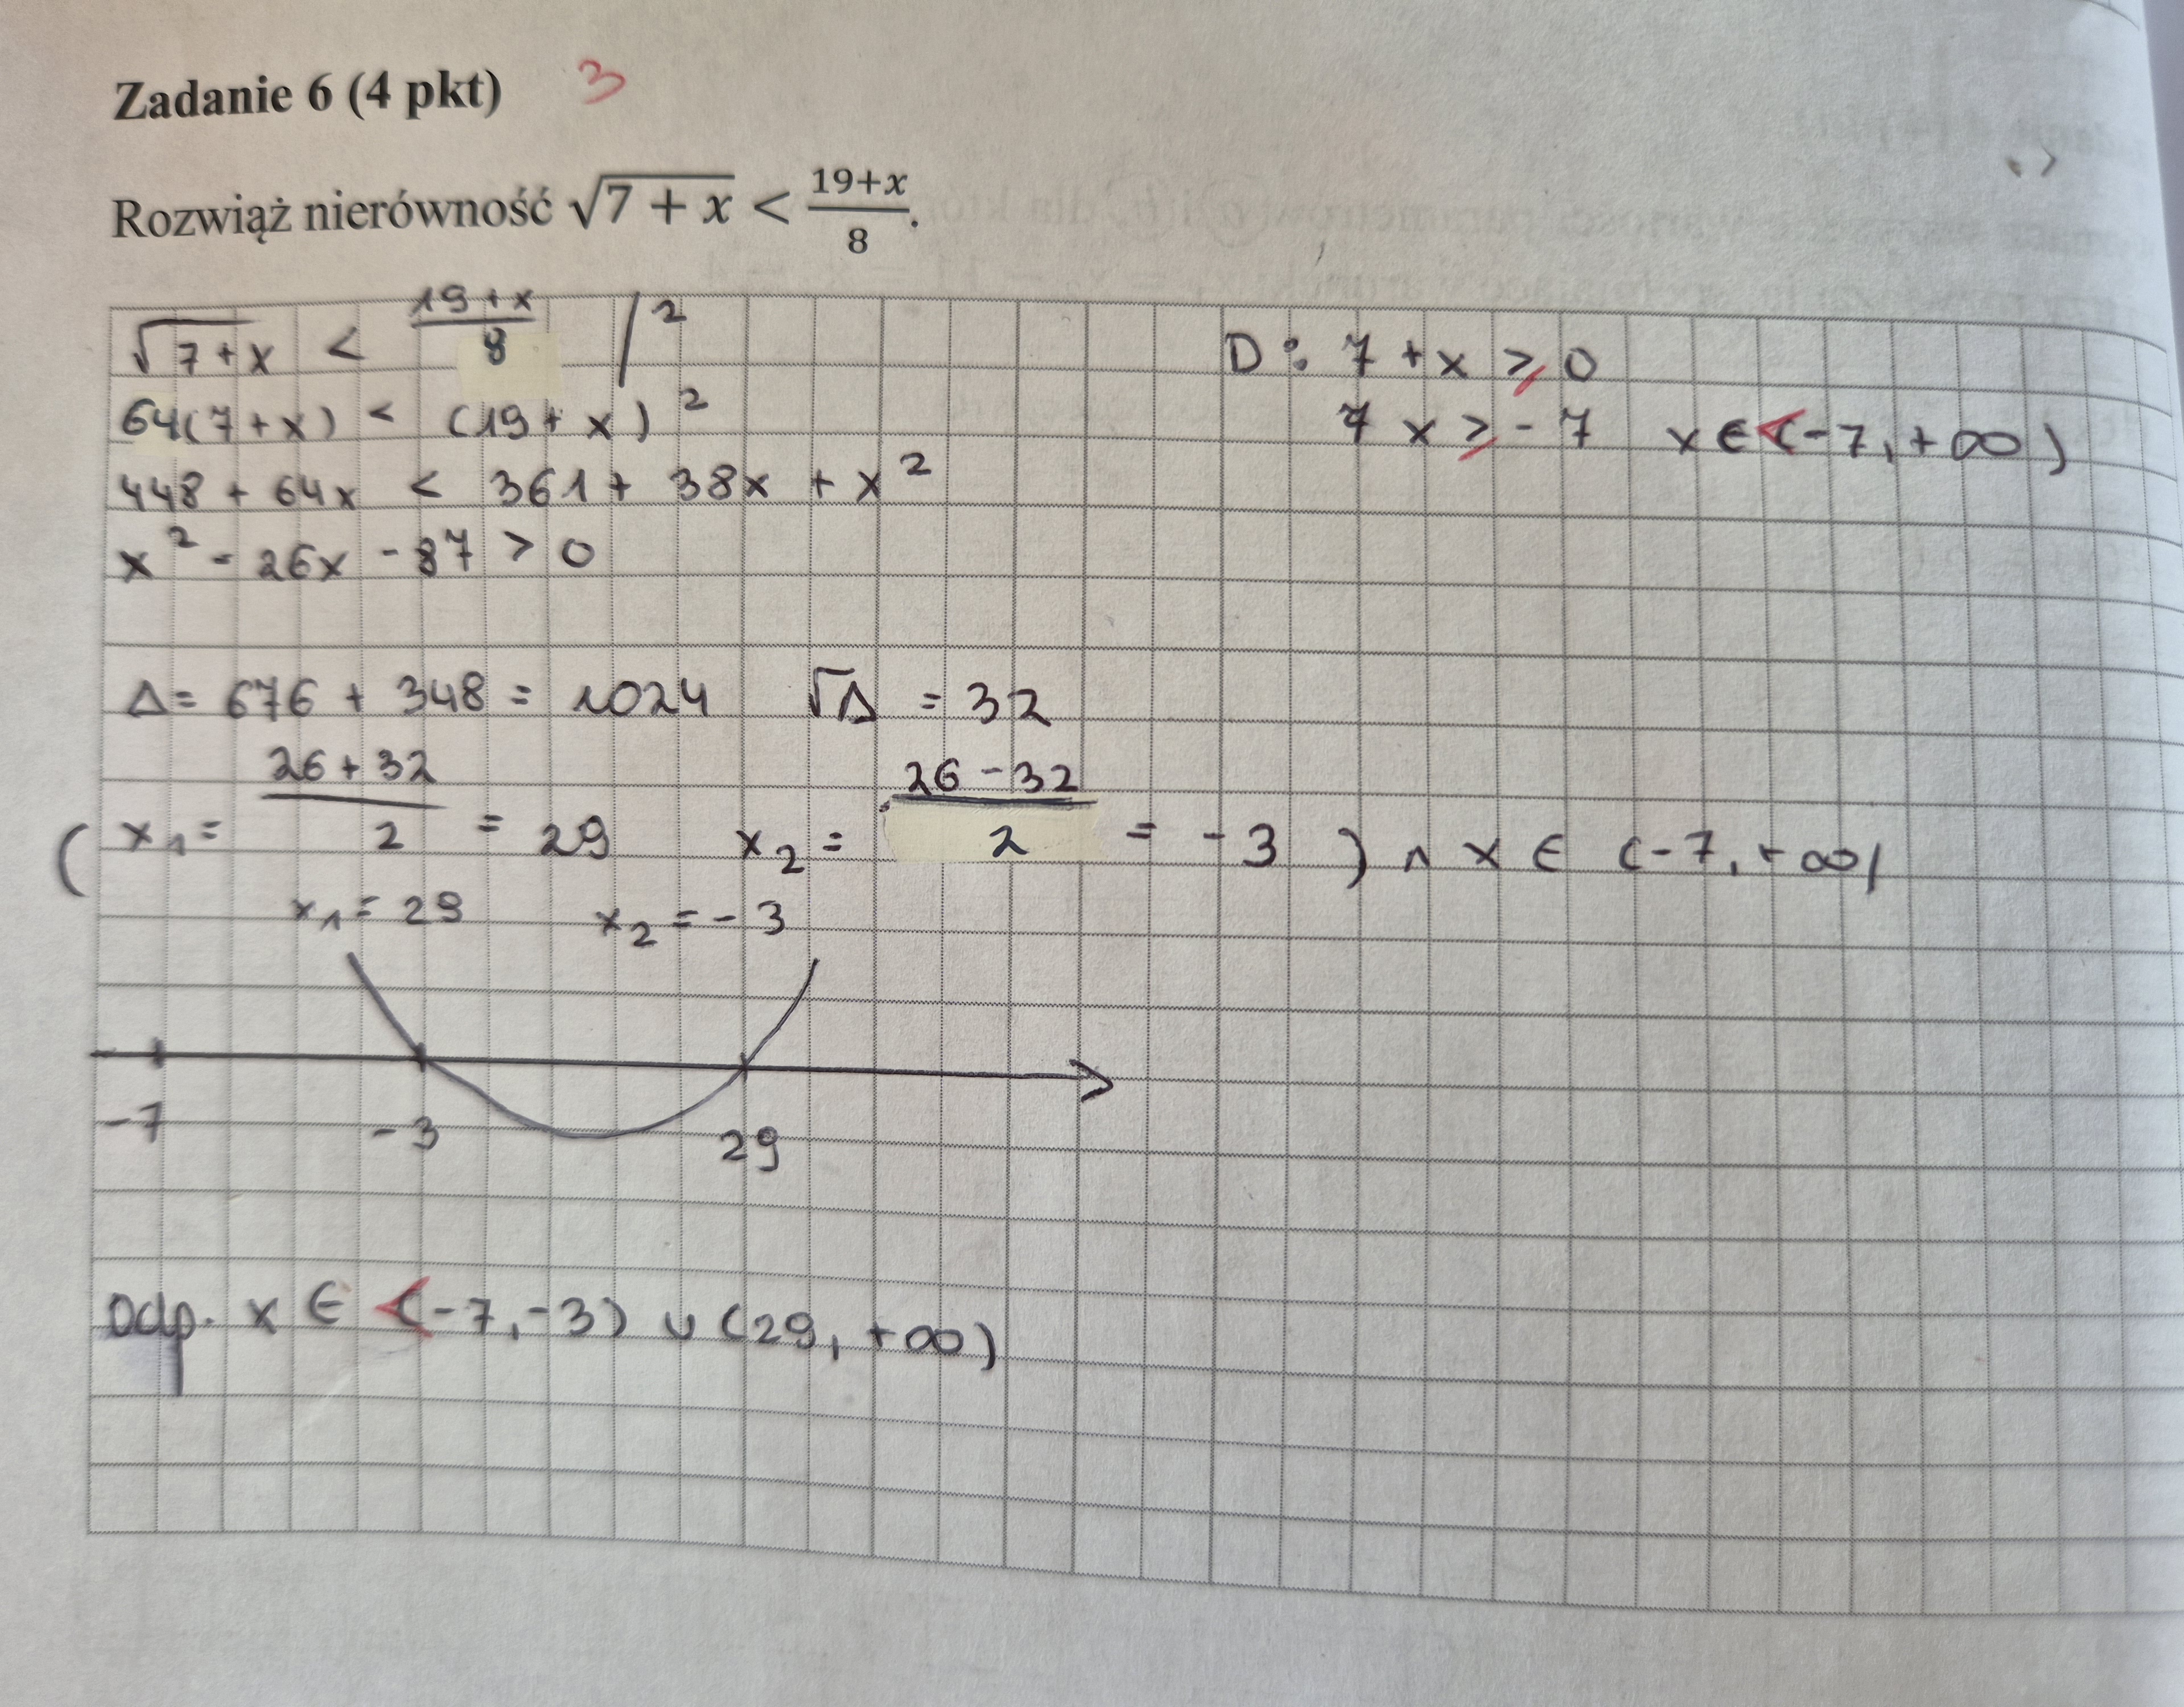 Zadanie 6 (4 pkt) 3
Rozwiąż nierówność √7 + x < 19+x/8.
√7+x < 19+x/8 |²
D: 7 + x ⩾ 0
64(7+x) < (19+x)²
x ⩾ -7 x ∈ <-7, +∞)
448 + 64x < 361 + 38x + x²
x² - 26x - 87 > 0
Δ = 676 + 348 = 1024 √Δ = 32
( x₁ = 26+32/2 = 29 x₂ = 26-32/2 = -3 ) ∧ x ∈ (-7, +∞)
x₁ = 29 x₂ = -3
-7 -3 29
Odp. x ∈ <-7, -3) ∪ (29, +∞)